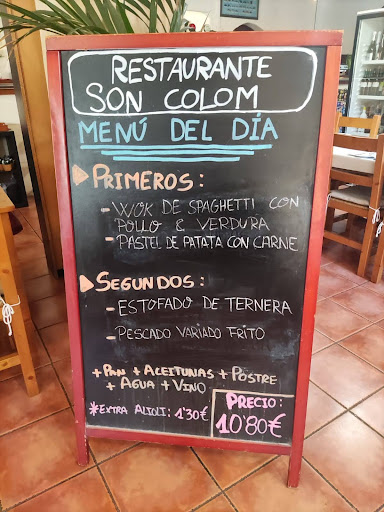 RESTAURANTE
SON COLOM
MENÚ DEL DÍA
PRIMEROS:
- WOK DE SPAGHETTI CON
POLLO & VERDURA
- PASTEL DE PATATA CON CARNE
SEGUNDOS:
- ESTOFADO DE TERNERA
- PESCADO VARIADO FRITO
+ PAN + ACEITUNAS + POSTRE
+ AGUA + VINO
*EXTRA ALIOLI: 1'30€
PRECIO:
10'80€